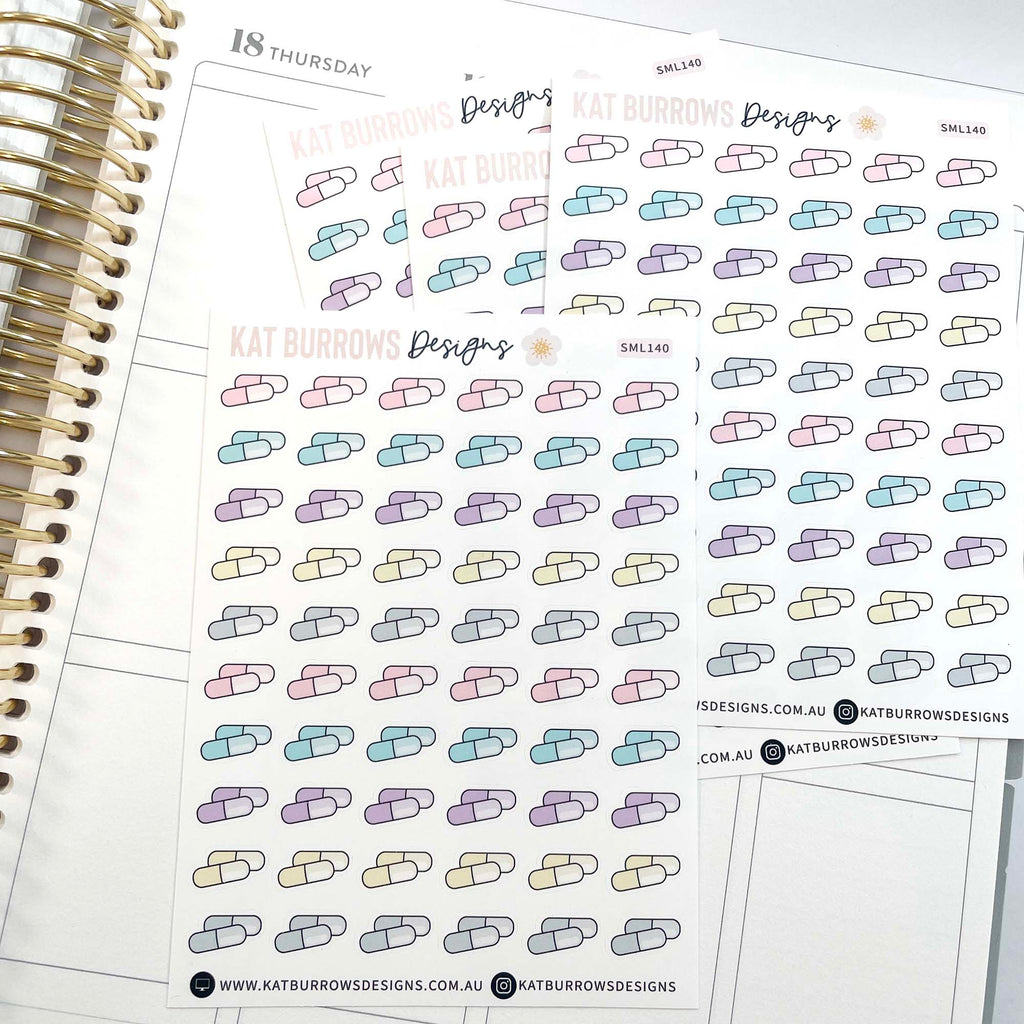 18 THURSDAY
SML140
KAT BURROWS Designs
KAT BURROWS
KAT BURROWS Designs
SML140
KAT BURROWS Designs
SML140
WWW.KATBURROWSDESIGNS.COM.AU KATBURROWSDESIGNS
WSDESIGNS.COM.AU KATBURROWSDESIGNS
.COM.AU KATBURROWSDESIGNS